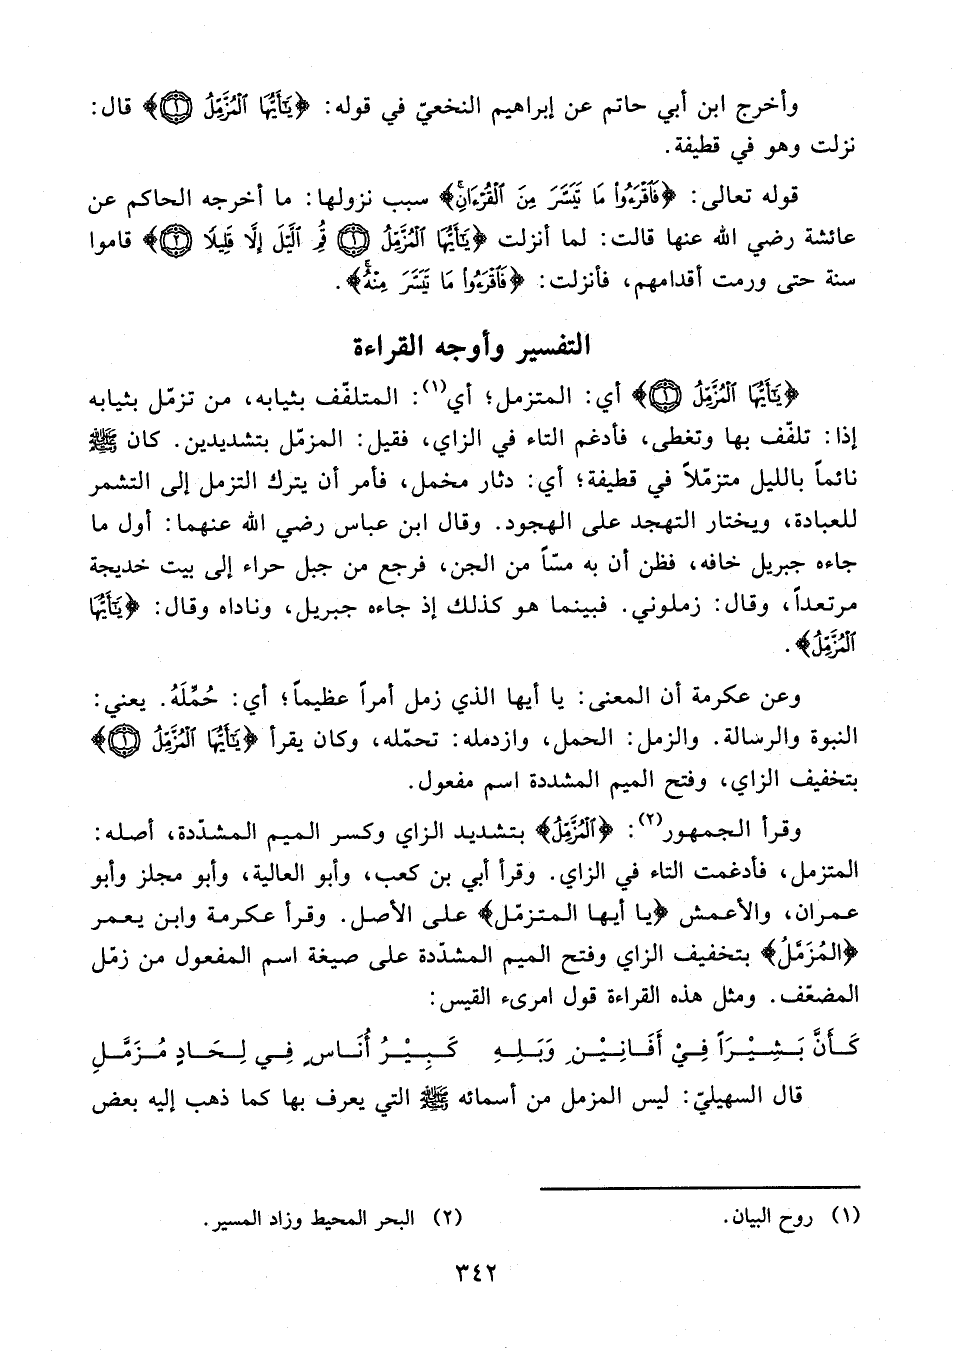 وأخرج ابن أبي حاتم عن إبراهيم النخعيّ في قوله: ﴿يَٰٓأَيُّهَا ٱلْمُزَّمِّلُ ١﴾ قال:
نزلت وهو في قطيفة.
قوله تعالى: ﴿فَٱقْرَءُوا۟ مَا تَيَسَّرَ مِنَ ٱلْقُرْءَانِۚ﴾ سبب نزولها: ما أخرجه الحاكم عن
عائشة رضي الله عنها قالت: لما أنزلت ﴿يَٰٓأَيُّهَا ٱلْمُزَّمِّلُ ١ قُمِ ٱلَّيْلَ إِلَّا قَلِيلًا ٢﴾ قاموا
سنة حتى ورمت أقدامهم، فأنزلت: ﴿فَٱقْرَءُوا۟ مَا تَيَسَّرَ مِنْهُۚ﴾.
التفسير وأوجه القراءة
﴿يَٰٓأَيُّهَا ٱلْمُزَّمِّلُ ١﴾ أي: المتزمل؛ أي(١): المتلفّف بثيابه، من تزمّل بثيابه
إذا: تلفّف بها وتغطى، فأدغم التاء في الزاي، فقيل: المزمّل بتشديدين. كان ﷺ
نائماً بالليل متزمّلاً في قطيفة؛ أي: دثار مخمل، فأمر أن يترك التزمل إلى التشمر
للعبادة، ويختار التهجد على الهجود. وقال ابن عباس رضي الله عنهما: أول ما
جاءه جبريل خافه، فظن أن به مسّاً من الجن، فرجع من جبل حراء إلى بيت خديجة
مرتعداً، وقال: زملوني. فبينما هو كذلك إذ جاءه جبريل، وناداه وقال: ﴿يَٰٓأَيُّهَا
ٱلْمُزَّمِّلُ﴾.
وعن عكرمة أن المعنى: يا أيها الذي زمل أمراً عظيماً؛ أي: حُمِّلَهُ. يعني:
النبوة والرسالة. والزمل: الحمل، وازدمله: تحمّله، وكان يقرأ ﴿يَٰٓأَيُّهَا ٱلْمُزَّمِّلُ ١﴾
بتخفيف الزاي، وفتح الميم المشددة اسم مفعول.
وقرأ الجمهور(٢): ﴿ٱلْمُزَّمِّلُ﴾ بتشديد الزاي وكسر الميم المشدّدة، أصله:
المتزمل، فأدغمت التاء في الزاي. وقرأ أبي بن كعب، وأبو العالية، وأبو مجلز وأبو
عمران، والأعمش ﴿يا أيها المتزمّل﴾ على الأصل. وقرأ عكرمة وابن يعمر
﴿المُزَمَّلُ﴾ بتخفيف الزاي وفتح الميم المشدّدة على صيغة اسم المفعول من زمّل
المضعّف. ومثل هذه القراءة قول امرىء القيس:
كَأَنَّ بَشِيْرَاً فِيْ أَفَانِيْنِ وَبَلِهِ كَبِيْرُ أُنَاسٍ فِي لِحَادٍ مُزَمَّلِ
قال السهيليّ: ليس المزمل من أسمائه ﷺ التي يعرف بها كما ذهب إليه بعض
(١) روح البيان. (٢) البحر المحيط وزاد المسير.
٣٤٢